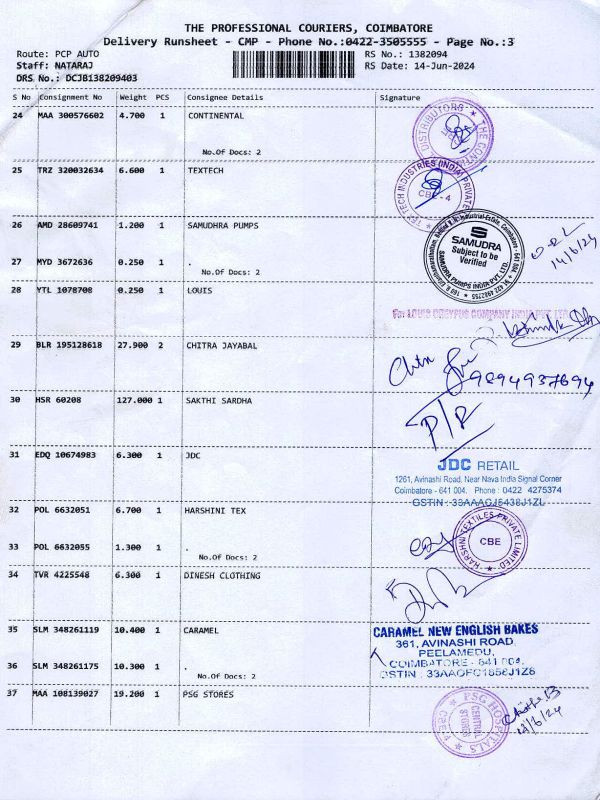 THE PROFESSIONAL COURIERS, COIMBATORE
Delivery Runsheet - CMP - Phone No.:0422-3505555 - Page No.:3
Route: PCP AUTO
RS No.: 1382094
Staff: NATARAJ
RS Date: 14-Jun-2024
DRS No.: DCJB138209403
S No Consignment No Weight PCS Consignee Details Signature
24 MAA 300576602 4.700 1 CONTINENTAL
No.Of Docs: 2
25 TRZ 320032634 6.600 1 TEXTECH
TEXTECH INDUSTRIES (INDIA) PRIVATE
CBE-4
26 AMD 28609741 1.200 1 SAMUDHRA PUMPS
SAMUDRA
Subject to be
Verified
SAMUDRA PUMPS INDIA PVT. LTD.
14/6/24
27 MYD 3672636 0.250 1 .
No.Of Docs: 2
28 YTL 1078708 0.250 1 LOUIS
For LOUIS DREYFUS COMPANY INDIA PVT. LTD
29 BLR 195128618 27.900 2 CHITRA JAYABAL
9894937694
30 HSR 60208 127.000 1 SAKTHI SARDHA
P/R
31 EDQ 10674983 6.300 1 JDC
JDC RETAIL
1261, Avinashi Road, Near Nava India Signal Corner
Coimbatore - 641 004. Phone : 0422 4275374
32 POL 6632051 6.700 1 HARSHINI TEX
HARSHNI TEXTILES PRIVATE LIMITED
CBE
33 POL 6632055 1.300 1 .
No.Of Docs: 2
34 TVR 4225548 6.300 1 DINESH CLOTHING
35 SLM 348261119 10.400 1 CARAMEL
CARAMEL NEW ENGLISH BAKES
361, AVINASHI ROAD,
PEELAMEDU,
COIMBATORE - 641 004.
36 SLM 348261175 10.300 1 .
No.Of Docs: 2
37 MAA 108139027 19.200 1 PSG STORES
PSG HOSPITALS
CENTRAL
STORES
14/6/24